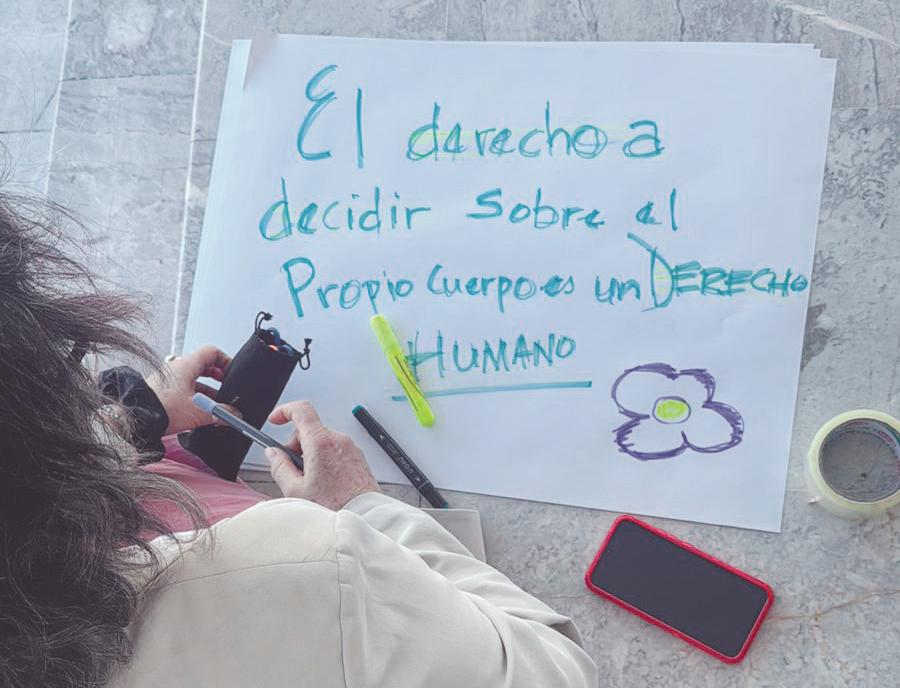 El derecho a
decidir sobre el
Propio Cuerpo es un DERECHO
HUMANO